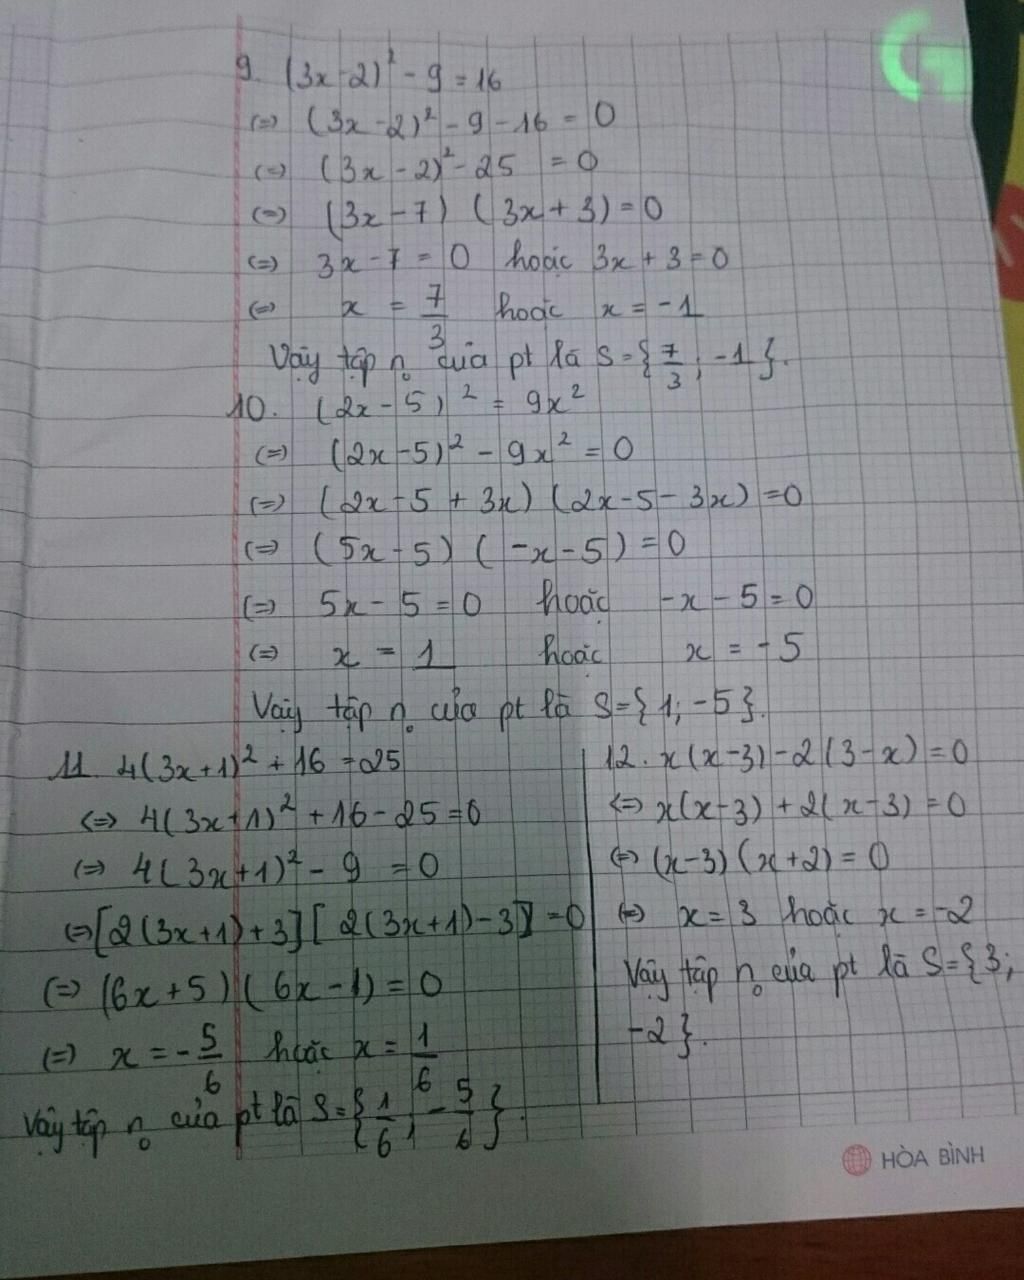 9. (3x-2)² - 9 = 16
(=) (3x-2)² - 9 - 16 = 0
(=) (3x-2)² - 25 = 0
(=) (3x-7) (3x+3) = 0
(=) 3x-7 = 0 hoặc 3x+3 = 0
(=) x = 7/3 hoặc x = -1
Vậy tập no của pt là S={7/3; -1}.
10. (2x-5)² = 9x²
(=) (2x-5)² - 9x² = 0
(=) (2x-5+3x) (2x-5-3x) = 0
(=) (5x-5) (-x-5) = 0
(=) 5x-5 = 0 hoặc -x-5 = 0
(=) x = 1 hoặc x = -5
Vậy tập no của pt là S={1; -5}.
11. 4(3x+1)² + 16 = 25
<=> 4(3x+1)² + 16 - 25 = 0
(=) 4(3x+1)² - 9 = 0
(=) [2(3x+1)+3] [2(3x+1)-3] = 0
(=) (6x+5) (6x-1) = 0
(=) x = -5/6 hoặc x = 1/6
Vậy tập no của pt là S={1/6; -5/6}.
12. x(x-3) - 2(3-x) = 0
<=> x(x-3) + 2(x-3) = 0
(=) (x-3) (x+2) = 0
(=) x = 3 hoặc x = -2
Vậy tập no của pt là S={3;
-2}.
HÒA BÌNH